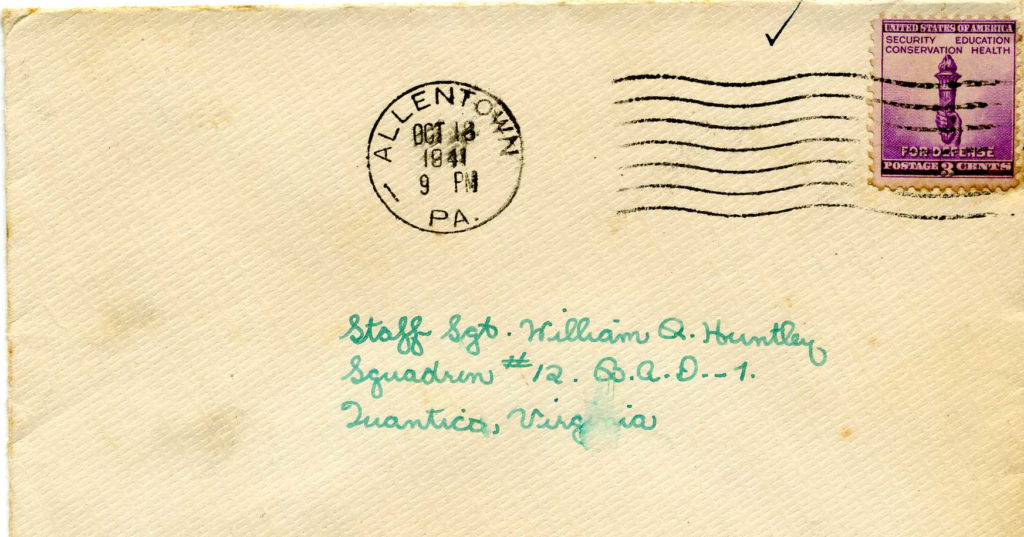 UNITED STATES OF AMERICA
SECURITY EDUCATION
CONSERVATION HEALTH
FOR DEFENSE
POSTAGE 3 CENTS
ALLENTOWN
OCT 18
1941
9 PM
PA.
1
Staff Sgt. William A. Huntley,
Squadron #12. B.A.D.-1.
Quantico, Virginia